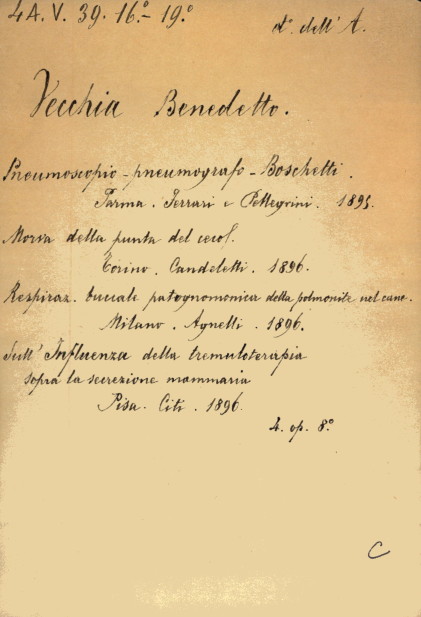 4 A. V. 39. 16.º - 19.º
dº. dell' A.
Vecchia Benedetto.
Pneumoscopio - pneumografo - Boschetti.
Parma. Ferrari e Pellegrini. 1895.
Morva della punta del
Torino. Candeletti. 1896.
Respiraz. buccale patognomonica della polmonite nel cane.
Milano. Agnelli. 1896.
Sull' Influenza della tremuloterapia
sopra la secrezione mammaria
Pisa. Citi. 1896.
4. op. 8º
C